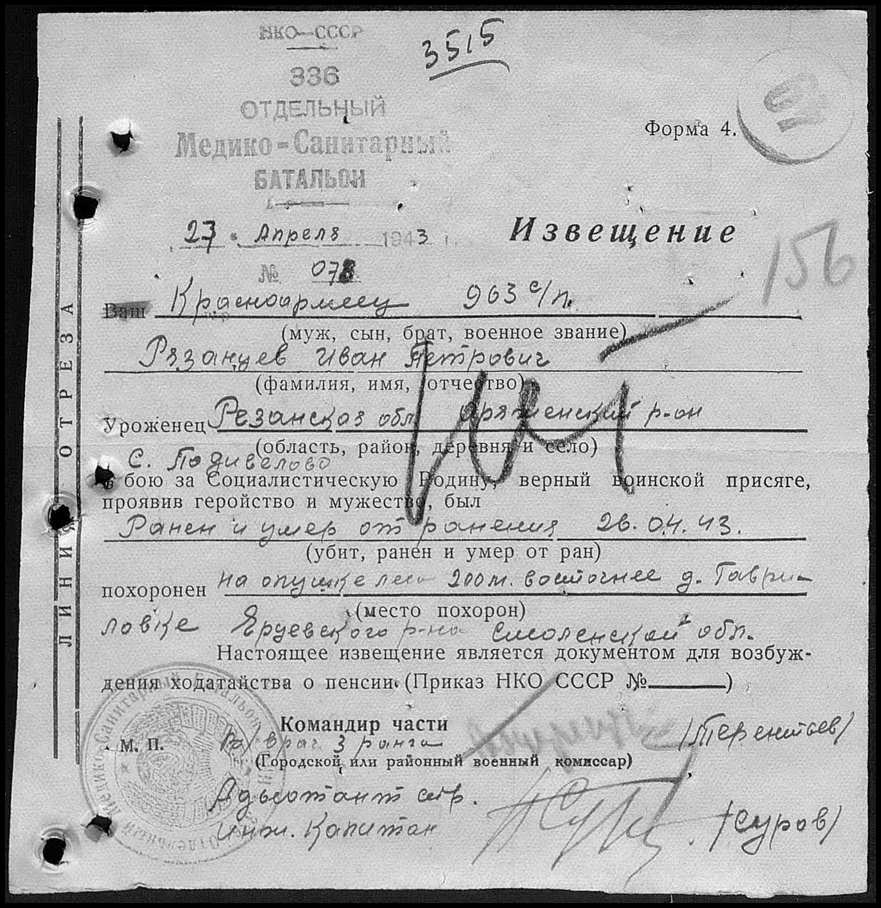 НКО-СССР
3515
336
ОТДЕЛЬНЫЙ
Медико-Санитарный
БАТАЛЬОН
Форма 4.
27 Апреля 1943 г.
Извещение
156
№ 078
Ваш Красноармеец 963 с/п.
(муж, сын, брат, военное звание)
Рязанцев Иван Петрович
(фамилия, имя, отчество)
Уроженец Резанская обл р-он
(область, район, деревня и село)
с. Подивелово
в бою за Социалистическую Родину, верный воинской присяге,
проявив геройство и мужество, был
Ранен и умер от ранения 26.04.43.
(убит, ранен и умер от ран)
похоронен на опушке леса 200 м. восточнее д. Гаври-
(место похорон)
ловке р-на Смоленской обл.
Настоящее извещение является документом для возбуж-
дения ходатайства о пенсии (Приказ НКО СССР № )
Командир части
М. П. врач 3 ранга /Терентьев/
(Городской или районный военный комиссар)
Адьютант стр.
инт. Капитан /Суров/
ЛИНИЯ ОТРЕЗА